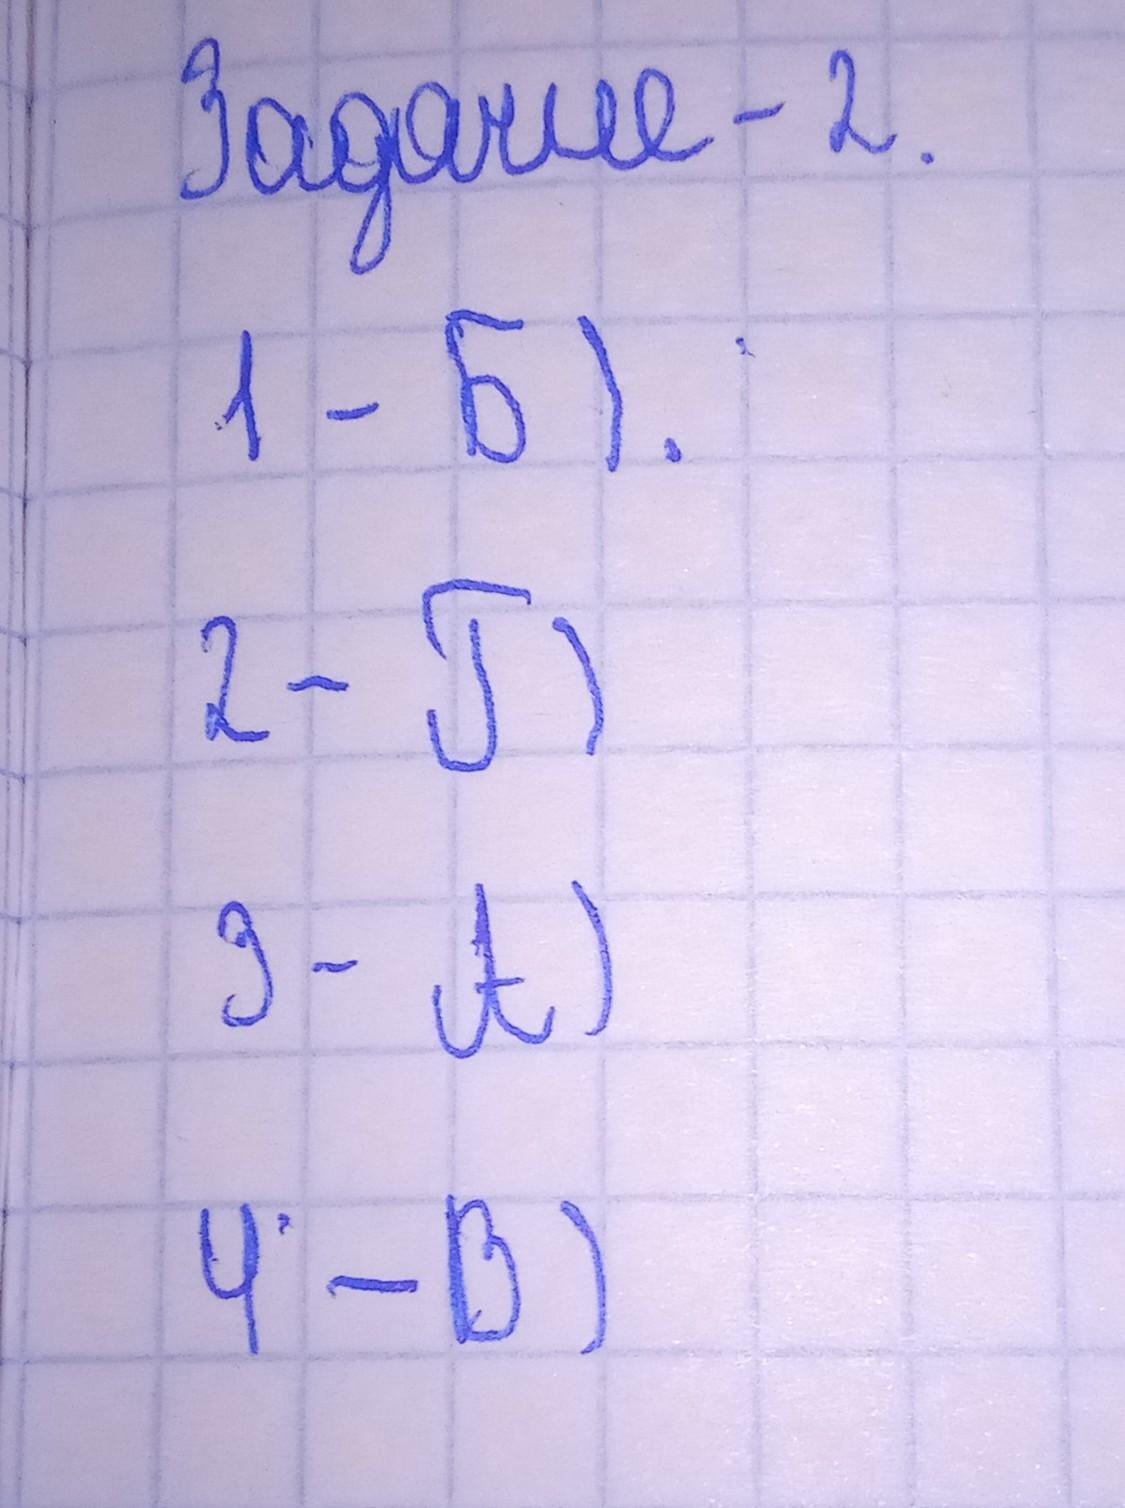 Задание - 2.
1 - Б).
2 - Г)
3 - А)
4 - В)